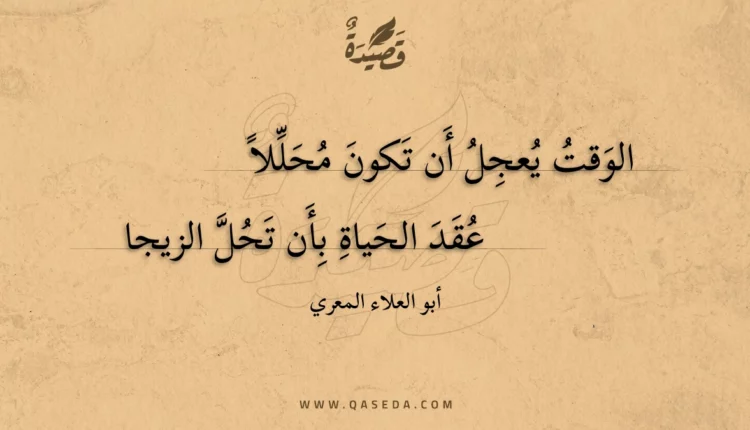 قَصِيدَةٌ
الوَقتُ يُعجِلُ أَن تَكونَ مُحَلِّلاً
عُقَدَ الحَياةِ بِأَن تَحُلَّ الزيجا
أبو العلاء المعري
WWW.QASEDA.COM